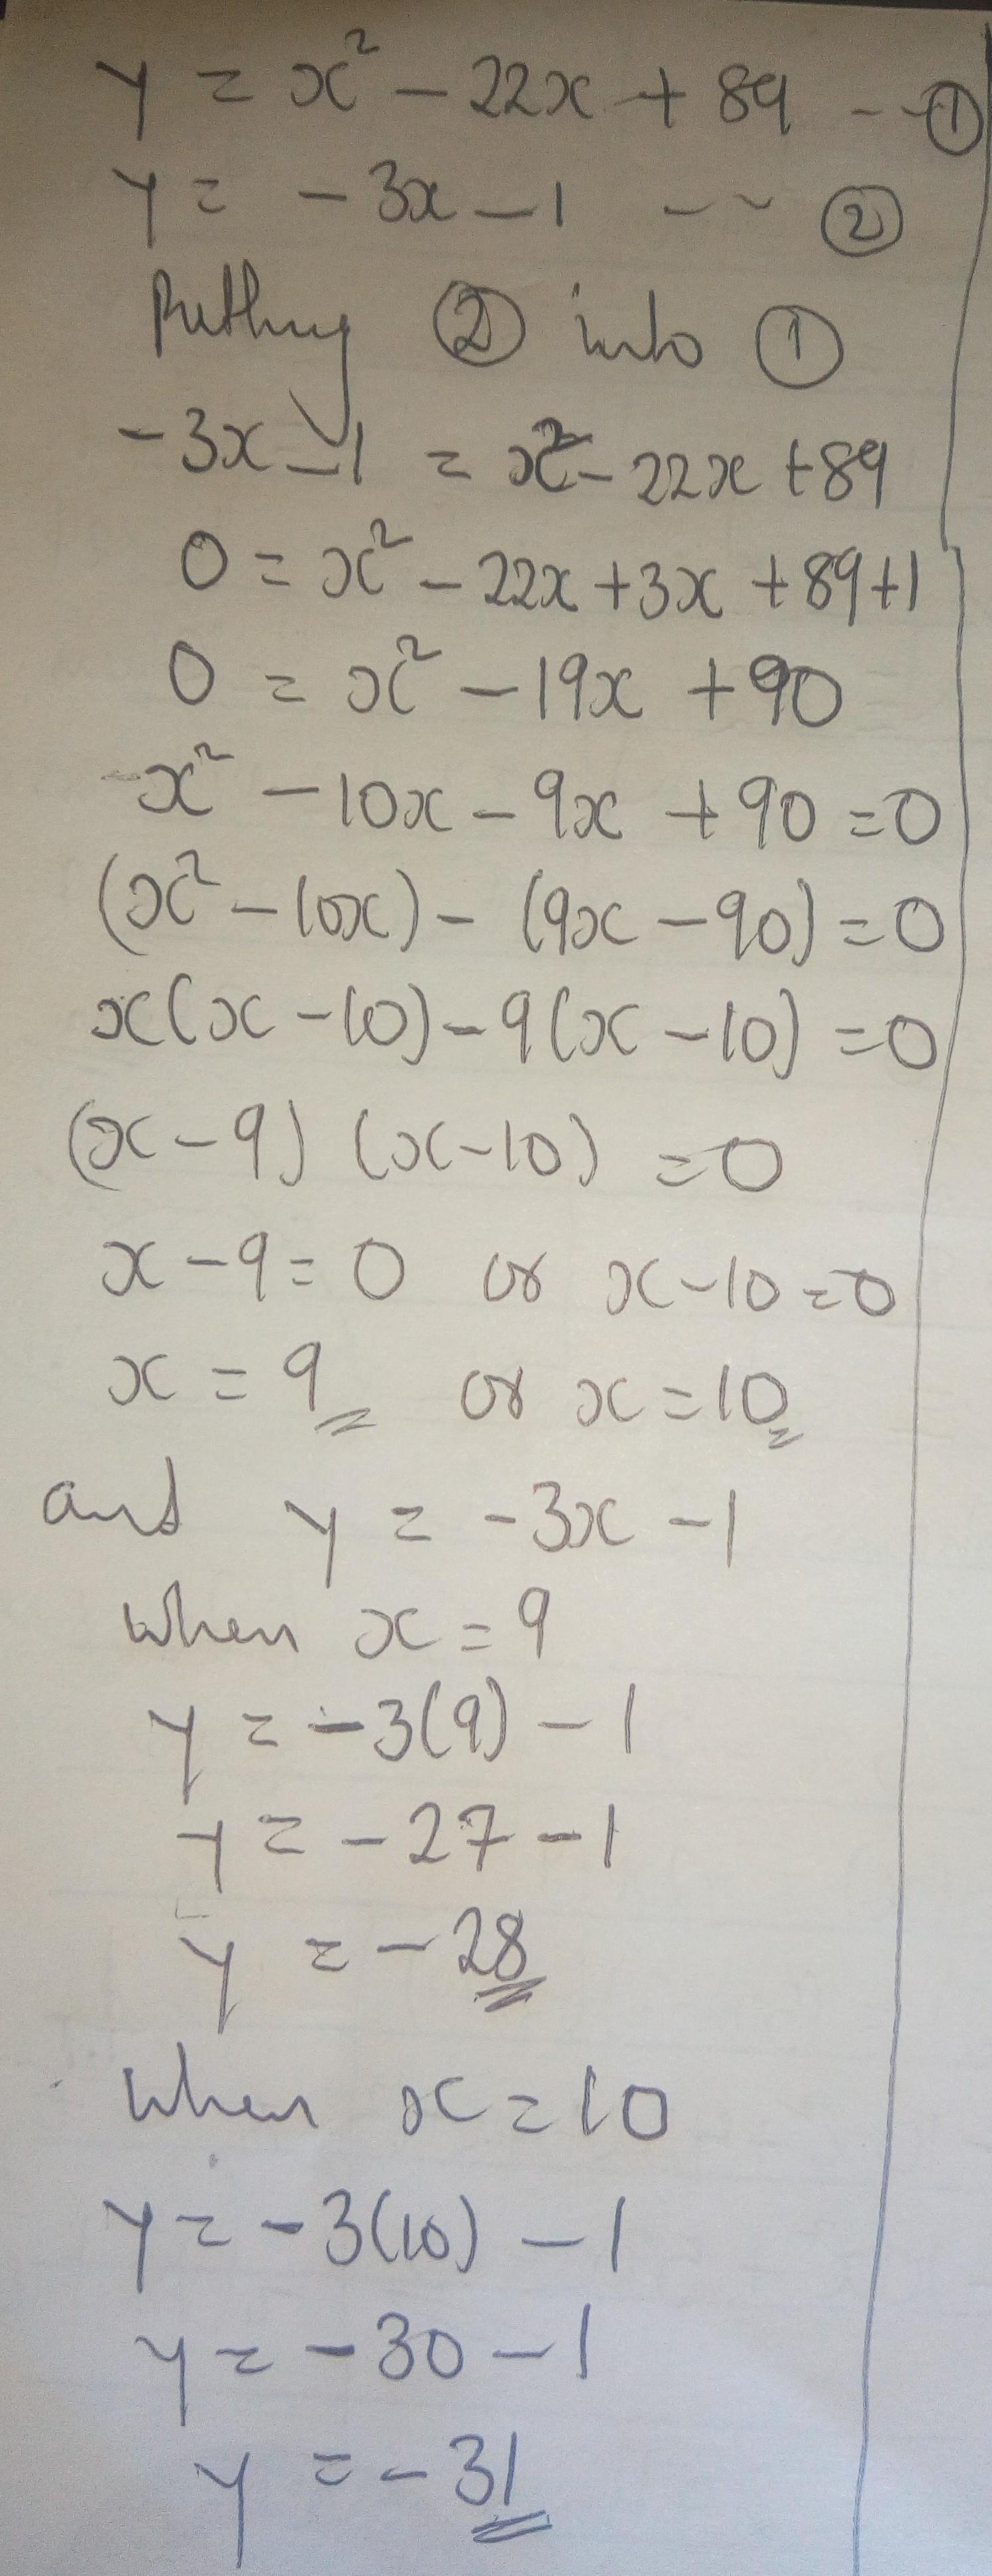 y = x² - 22x + 89 -- ①
y = -3x - 1 -- ②
Putting ② into ①
-3x - 1 = x² - 22x + 89
0 = x² - 22x + 3x + 89 + 1
0 = x² - 19x + 90
x² - 10x - 9x + 90 = 0
(x² - 10x) - (9x - 90) = 0
x(x - 10) - 9(x - 10) = 0
(x - 9) (x - 10) = 0
x - 9 = 0 or x - 10 = 0
x = 9 or x = 10
and y = -3x - 1
when x = 9
y = -3(9) - 1
y = -27 - 1
y = -28
when x = 10
y = -3(10) - 1
y = -30 - 1
y = -31